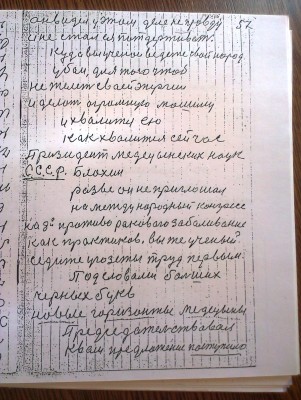 он видел у этом деле неправду 57.
и не стал ея потдерживат.
Куда вы ученые ведете свой народ
убай, для того чтоб
не желет своей энргии
и делот огромную машину
и хвалится ею
как хвалится сейчас
Призидент медецынских наук
С.С.С.Р. Блохин
разве он не приглошал
на международный конгресс
противо ракового заболивание
как практиков, вы же ученый
седите у газеты труд первым.
Под словами болших
черных букв
новые горизонты медецыны
Предсе дательствавал
К вам предложение поступило